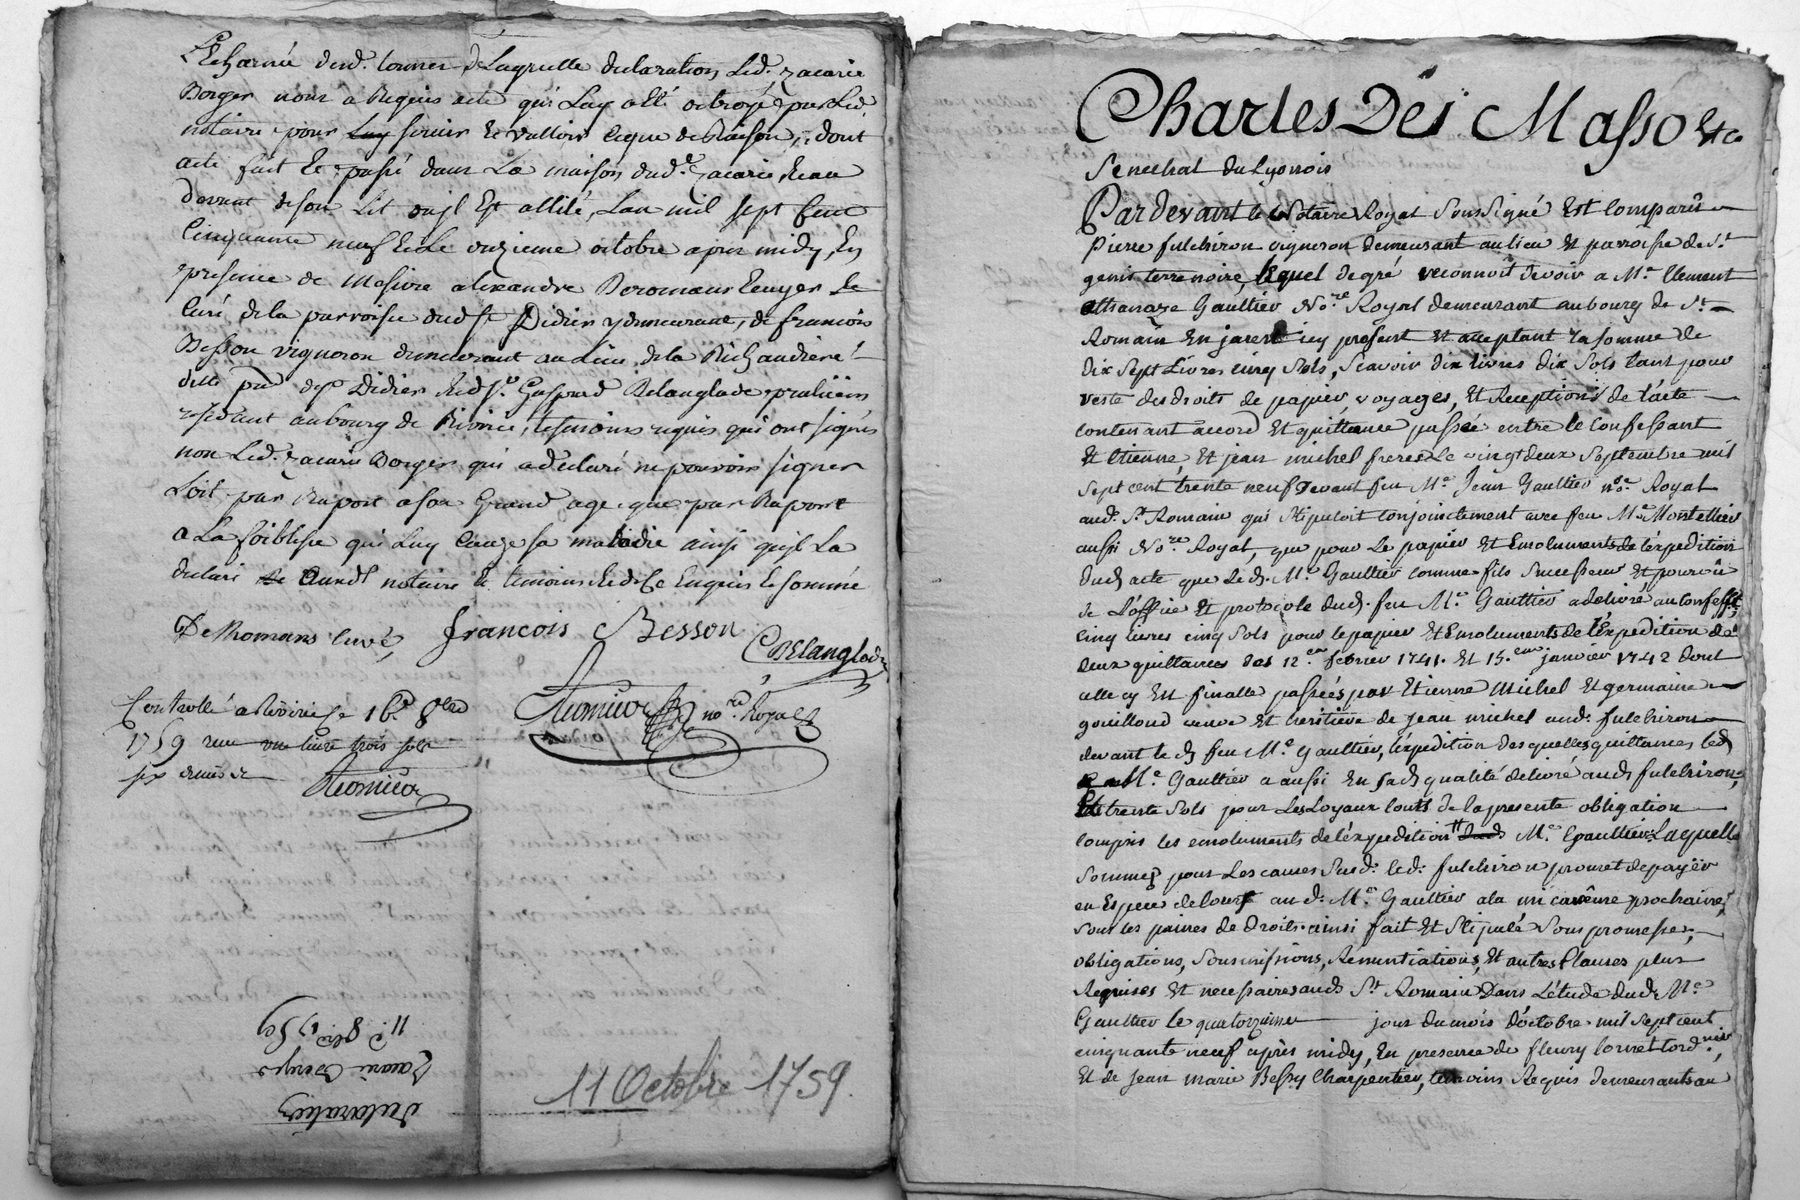 et charrié dud. tonner de laquelle declaration led. zacarie
Borger nous a Requis acte qui Luy a été octroyé par Led.
notaire pour Luy servir et valloir ceque de Raison, dont
acte fait et passé dans La maison dud. zacarie Beau
devant deson Lit ou jl Est allité, Lan mil sept Cent
Cinquante neuf Et le onzieme octobre apres midy, En
presence de Messire alexandre Deromans Ecuyer Le
Curé de la parroisse dud St Didier y demeurant, de francois
Besson vigneron demeurant au Lieu de la Richaudiere
ditte prse de St Didier Et de Sr. Gaspard Belanglade praticien
residant au bourg de Riverie, temoins requis qui ont signés
non Led. zacarie Borger qui a declaré ne pouvoir signer
soit par Raport a son Grand age que par Raport
a La foiblesse qui Luy Cauze sa maladie ainsi qu'jl La
declaré audt notaire Et temoins de ce Enquis Et sommé
DeRomans Curé, francois Besson
GBelanglade
Romieu nore. Royal
Controllé a Riverie le 16e. 8bre
1759 reçu une livre trois sols
six deniers
Romieu
11 Octobre 1759.
Declaration
Zacarie Borger
11e 8bre 1759
Charles Des Masso &ca
Senechal du Lyonnois
Pardevant le Notaire Royal Soussigné Est Comparû
Pierre fulchiron vigneron demeurant au lieu Et parroisse de St.
genis terre noire, lequel de gré reconnoit devoir a Me. Clement
athanaze Gaultier Nore. Royal demeurant au bourg de St.
Romain En jarest icy present Et acceptant La somme de
dix sept Livres cinq sols, Scavoir dix livres dix sols tant pour
reste des droits de papier, voyages, Et Receptions de l'acte
contenant accord Et quittance passée entre le Confessant
Et Etienne, Et jean michel freres le vingt deux Septembre mil
sept cent trente neuf devant feu Me. Jean Gaultier nore. Royal
aud. St. Romain qui Stipuloit conjoinctement avec feu Me. Montellier
aussi Nore. Royal, que pour Le papier Et Emoluments de l'expedition
dud acte que Led. Me. Gaultier comme fils successeur Et pourvû
de L'office Et protocole dud. feu Me. Gaultier a delivré au Confesst,
cinq livres cinq sols pour le papier Et Emoluments de l'Expedition de
deux quittances des 12.eme février 1741. Et 15.eme janvier 1742 dont
celle cy En finalle passées par Etienne Michel Et germaine
gouilloud veuve Et heritiere de jean michel aud. fulchiron
devant le d. feu Me. Gaultier, l'expedition des quelles quittances led
Me. Gaultier a aussi En sad. qualité delivré aud fulchiron,
Et trente sols pour Les Loyaux couts de la presente obligation
compris les emoluments de l'expedition dud Me. Gaultier Laquelle
somme pour Les causes susd. led. fulchiron promet de payer
en Espece de cours aud. Me. Gaultier a la mi carême prochaine,
sous les peines de droits. ainsi fait Et Stipulé sous promesses,
obligations, Soumissions, Renuntiations, Et autres Clauses plus
Requises Et necessaires aud. St. Romain Dans L'etude dud. Me.
Gaultier le quatorzieme jour du mois d'octobre mil sept cent
cinquante neuf après midy, En presence de fleury Cornet Cordnier,
Et de Jean marie Bessy Charpentier, temoins Requis demeurants au